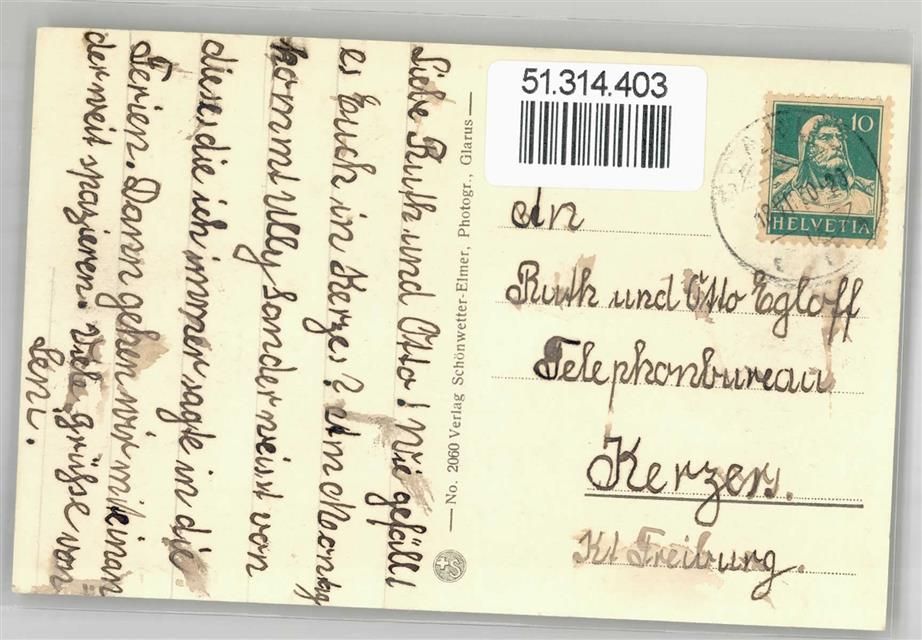 Liebe Ruth und Otto! Wie gefällt
es Euch in Kerzes? Am Montag
kommt Ully Sonder weisst von
dieses die ich immer sagte in die
Ferien. Dann gehen wir miteinan
der weit spazieren. Viele grüsse von
Leni.
No. 2060 Verlag Schönwetter-Elmer, Photogr., Glarus
51.314.403
10
HELVETIA
An
Ruth und Otto Egloff
Telephonbureau
Kerzers.
Kt Freiburg.